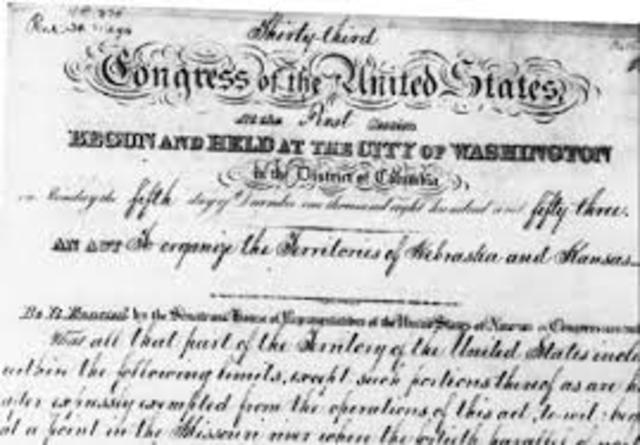 Thirty-third
Congress of the United States,
At the First Session
BEGUN AND HELD AT THE CITY OF WASHINGTON
in the District of Columbia,
on Monday the fifth day of December one thousand eight hundred and fifty three.
AN ACT To organize the Territories of Nebraska and Kansas.
Be it Enacted by the Senate and House of Representatives of the United States of America in Congress
That all that part of the Territory of the United States incl
within the following limits, except such portions thereof as are h
after expressly exempted from the operations of this act, to wit: beg
at a point in the Missouri river where the fortieth parallel of